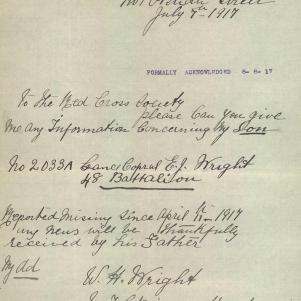 July 9th 1917
FORMALLY ACKNOWLEDGED 8-8-17
To The Red Cross Society
please Can you give
Me any Information Concerning My Son
No 2033A Lance Copral E.J. Wright
48 Battalion
Reported Missing Since April 11th 1917
any news will be Thankfully
received by his Father
My ad
W. H. Wright